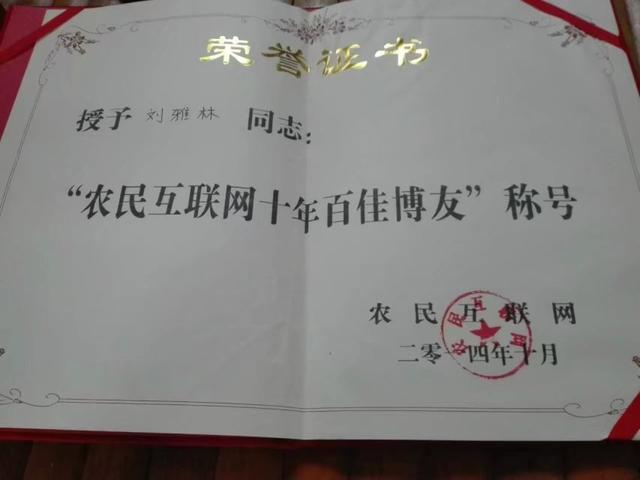 荣誉证书
授予 刘雅林 同志：
“农民互联网十年百佳博友”称号
农民互联网
二零一四年十月